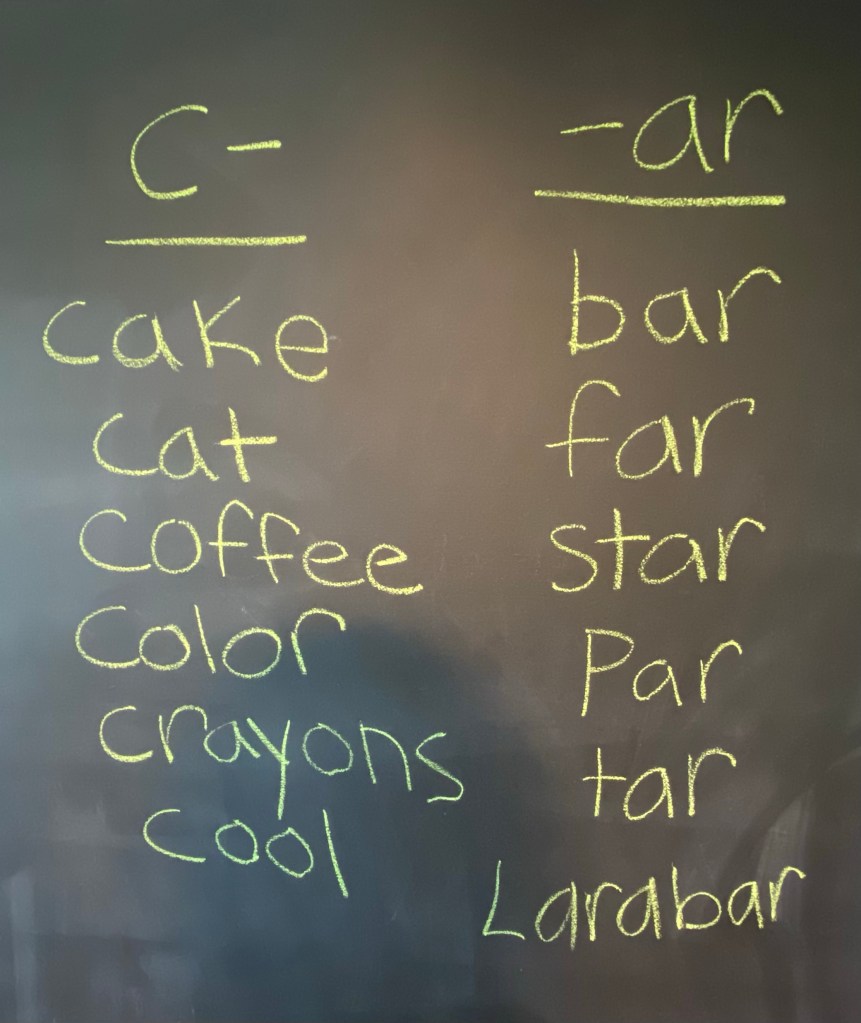 C-
cake
cat
coffee
color
crayons
cool
-ar
bar
far
star
Par
tar
Larabar